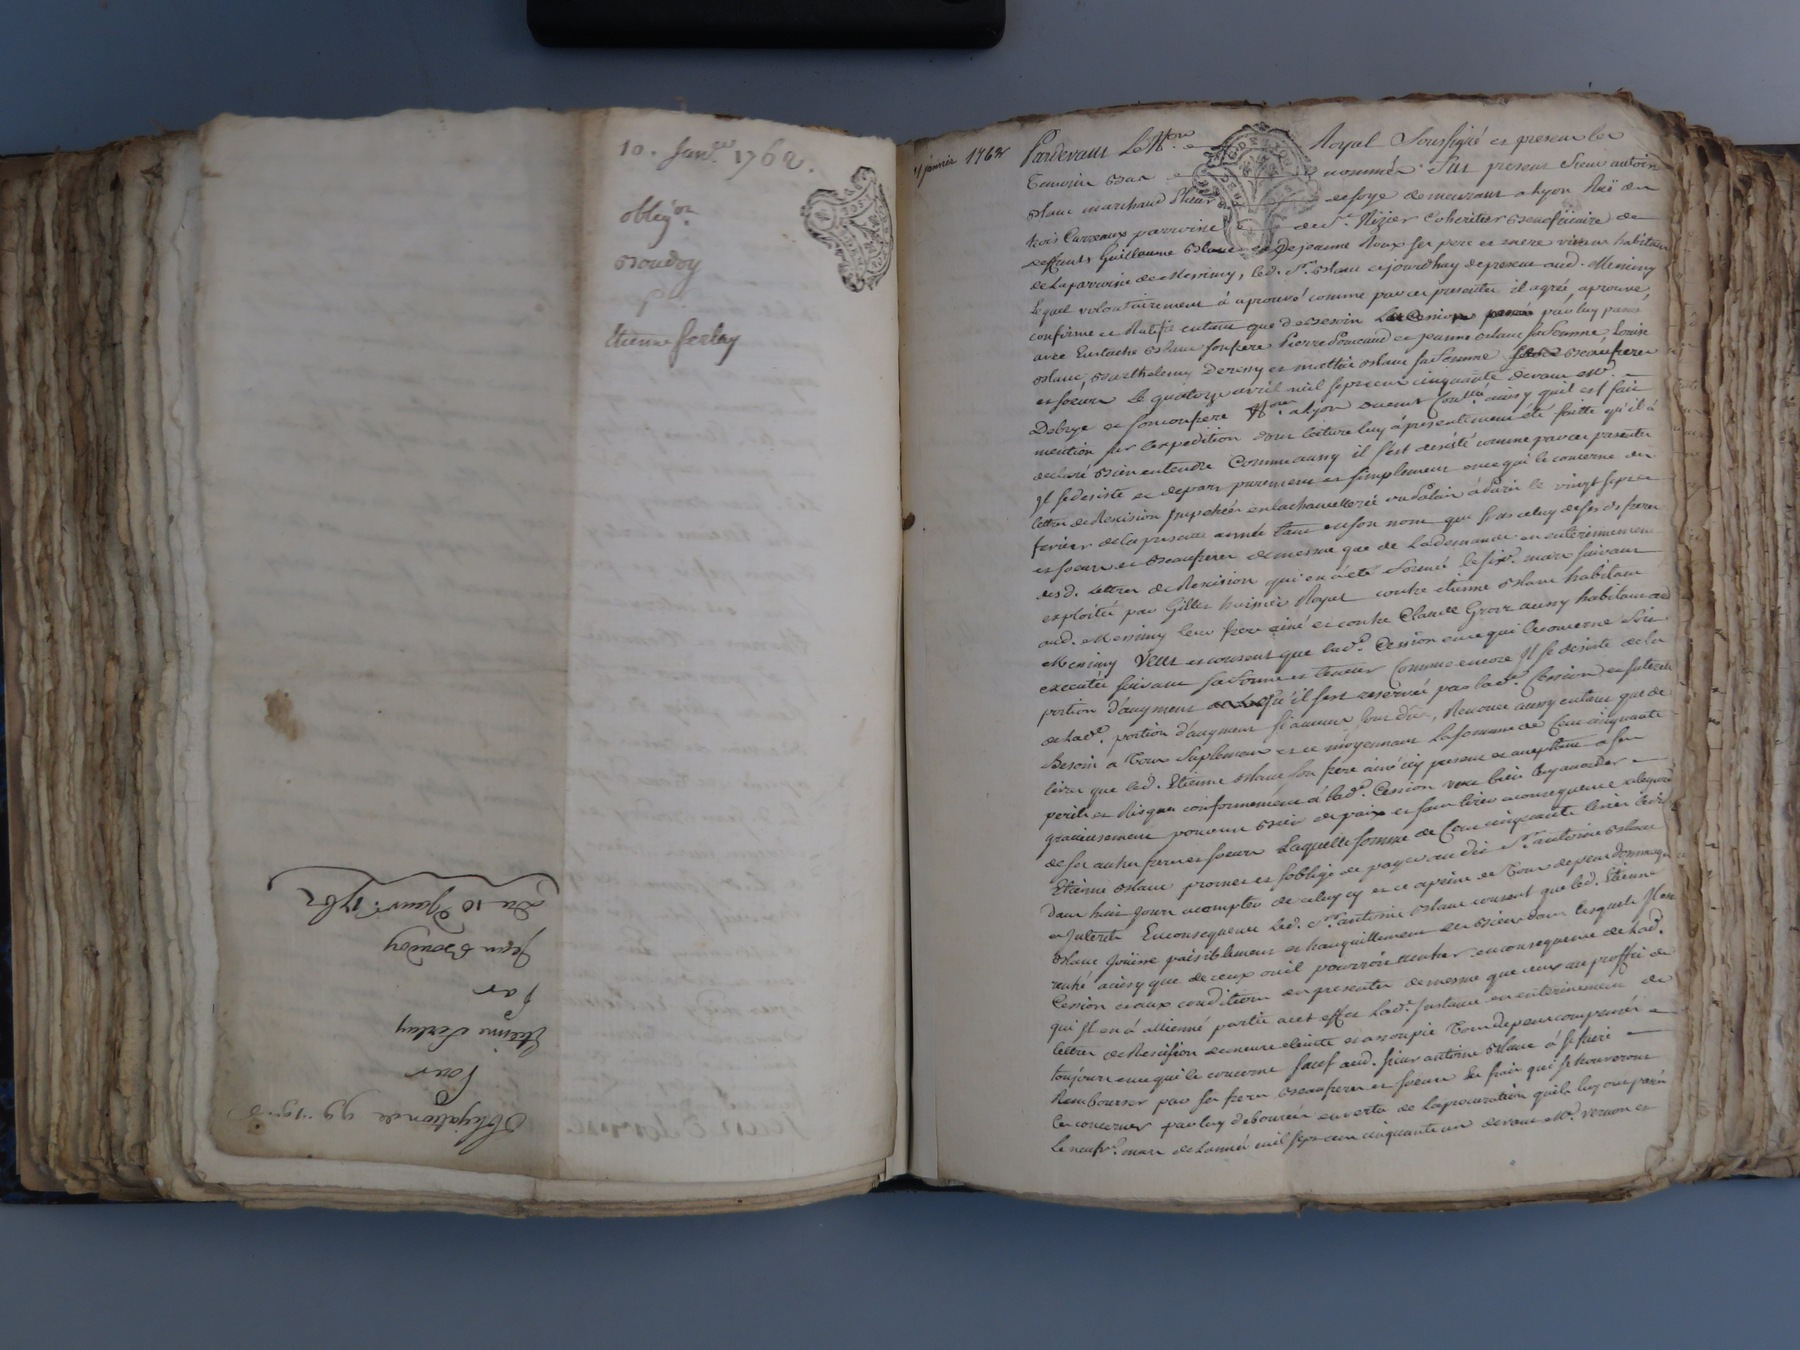 10. Janv.er 1762.
oblig.on
Boudoy
p.r
Etienne Ferlay
Obligation de 99
Pour
Etienne Ferlay
par
Jean Boudoy
Du 10 Janv.r 1762
janvier 1762
Pardevant Le N.re Royal Soussigné et present les
Temoins Bas nommés fut present Sieur antoine
Blanc marchand de soye demeurant a Lyon Ruë des
trois Carreaux parroisse de S.t Nizier Coheritier Beneficiaire de
deffunts Guillaume Blanc et De jeanne Roux ses pere et mere vivans habitans
de La parroisse de Messimy, led. S.r Blanc cejourdhuy de present aud. Messimy
Lequel volontairement à aprouvé comme par ces presentes il agrée, aprouve,
confirme et Ratifie entant que de besoin La Cession par luy passée
avec Eustache Blanc son frere Pierre et jeanne Blanc sa femme, Louise
Blanc, Barthelemy et Blanc sa femme Beaufreres
et soeurs Le quatorze avril mil sept cent cinquante devant M.e
Debrye et son confrere N.res a Lyon aussy quil est fait
mention sur Lexpedition dont lecture luy à presentement été faitte qu'il à
declaré Bien entendre Comme aussy il s'est desisté comme par ces presentes
Il se desiste et depart purement et simplement en ce qui le concerne des
lettres de Rescision Impetrées en la chancellerie du Palais à Paris le vingt sept
fevrier de la presente année tant en son nom que sous celuy de ses freres
et soeurs et Beaufreres de mesme que de La demande en enterinement
desd. Lettres de Rescision qui en à été formée le six.e mars suivant
exploitté par Gilles huissier Royal contre etienne Blanc habitant
aud. Messimy leur frere ainé et contre Claude aussy habitant aud.
Messimy Veut et consent que lad.e Cession en ce qui le concerne Soit
executée suivant sa forme et teneur Comme encore Il se desiste de la
portion d'augment qu'il s'est reservée par lad.e Cession et Interets
de lad.e portion d'augment si aucuns sont dus, Renonce aussy entant que de
Besoin a Tous Suplement et ce moyennant La somme de Cent cinquante
livres que led. Etienne Blanc son frere ainé icy present et acceptant a ses
perils et Risques conformement à lad.e Cession veut bien luy accorder
gracieusement pour un Bien de paix et sans tirer a consequence a legard
de ses autres freres et soeurs Laquelle somme de Cent cinquante livres led.
Etienne Blanc promet et s'oblige de payer au dit S.r antoine Blanc
dans huit jours a compter de celuy cy et ce a peine de Tous depens dommages
et Interets En consequence led. S.r antoine Blanc consent que led. Etienne
Blanc jouïsse paisiblement et tranquillement des Biens dans lesquels Il est
rentré ainsy que de ceux ou il pourroit rentrer en consequence de lad.
Cession et aux conditions des presentes de mesme que ceux au proffit de
qui Il en à allienné partie a cet effet Lad.e Instance en enterinement de
lettres de Rescision demeure eteinte et assoupie Tous depens compensés
toujours en ce qui le concerne sauf aud. sieur antoine Blanc à se faire
Rembourser par ses freres Beaufreres et soeurs Les frais qui se trouveront
les concerner par luy deboursés en vertu de La procuration quils luy ont passée
Le neufv.e mars de Lannée mil sept cent cinquante un devant M.e Vernon et